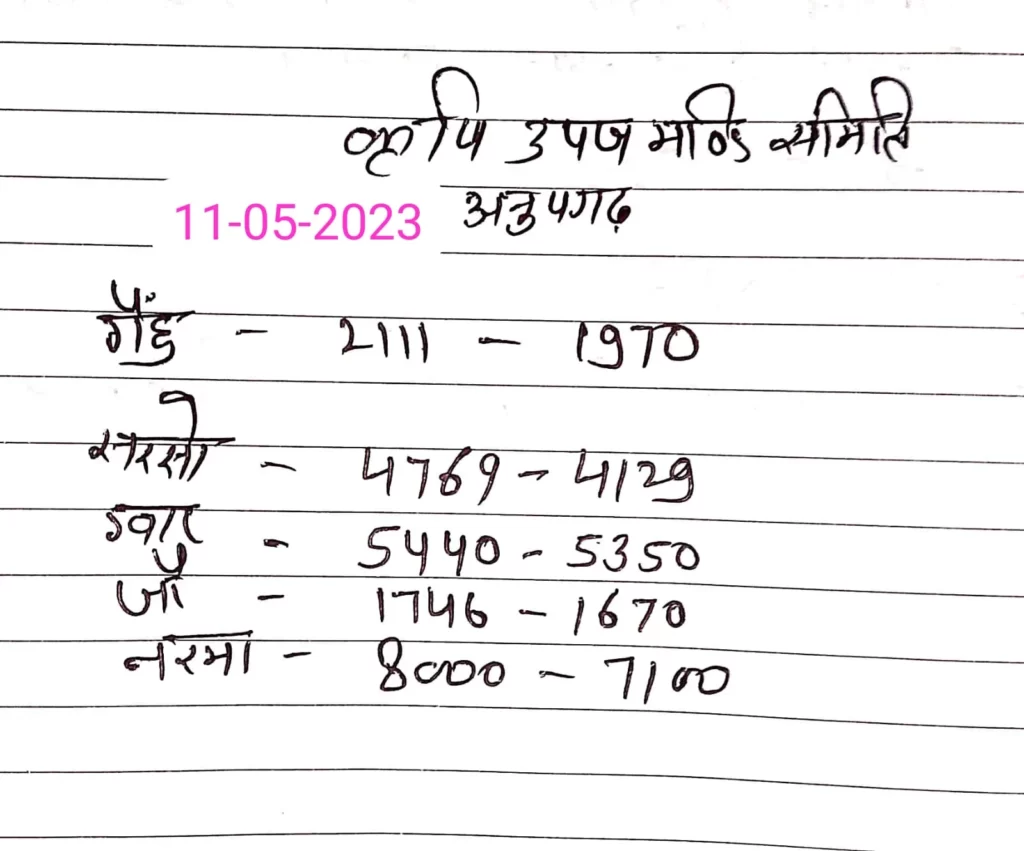 कृषि उपज मण्डि समिति
11-05-2023 अनुपगढ़
गैंहु - 2111 - 1970
सरसो - 4769 - 4129
ग्वार - 5440 - 5350
जौ - 1746 - 1670
नरमा - 8000 - 7100